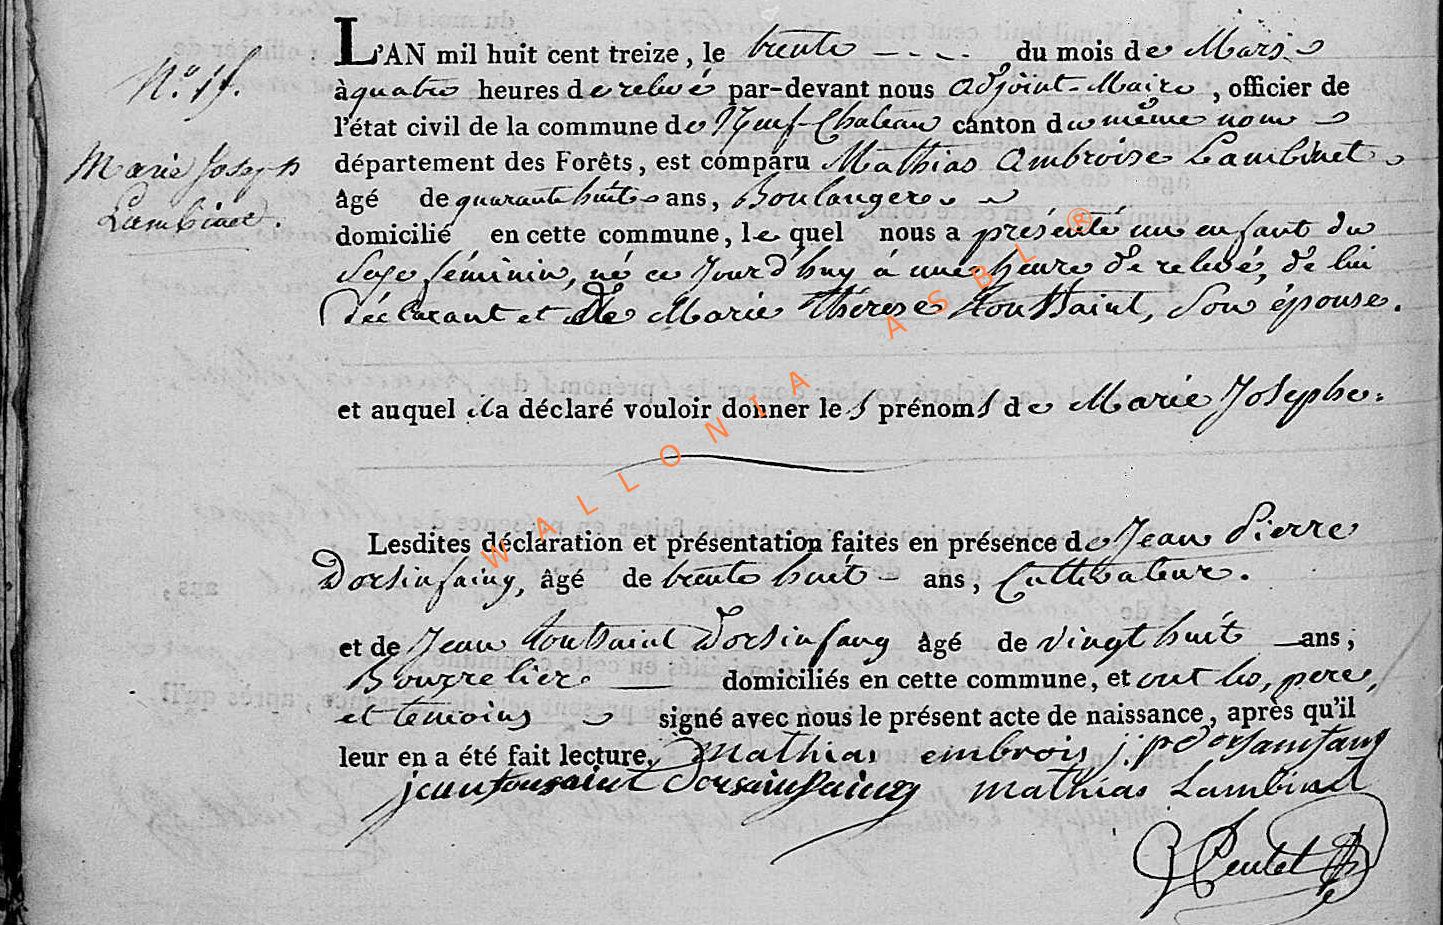 L'AN mil huit cent treize, le trente du mois de Mars
N.º 15.
à quatre heures de relevé par-devant nous adjoint-Maire, officier de
l'état civil de la commune de Neuf-Chateau canton du même nom
Marie Joseph
département des Forêts, est comparu Mathias Ambroise Lambinet
Lambinet.
âgé de quarante huit ans, Boulanger
domicilié en cette commune, le quel nous a présenté un enfant du
Sexe féminin, né ce Jourd'huy à une heure de relevé, de lui
déclarant et de Marie Thérese Toussaint, Son épouse.
et auquel il a déclaré vouloir donner les prénoms de Marie Josephe.
WALLONIA ASBL ®
Lesdites déclaration et présentation faites en présence de Jean Pierre
Dorsinfaing, âgé de trente huit ans, Cultivateur.
et de Jean Toussaint Dorsinfang âgé de vingt huit ans,
Bourrelier domiciliés en cette commune, et ont les, pere,
et temoins signé avec nous le présent acte de naissance, après qu'il
leur en a été fait lecture. mathias embrois j: p dorsainfang
jean tousaint dorsainfaing mathias Lambinet